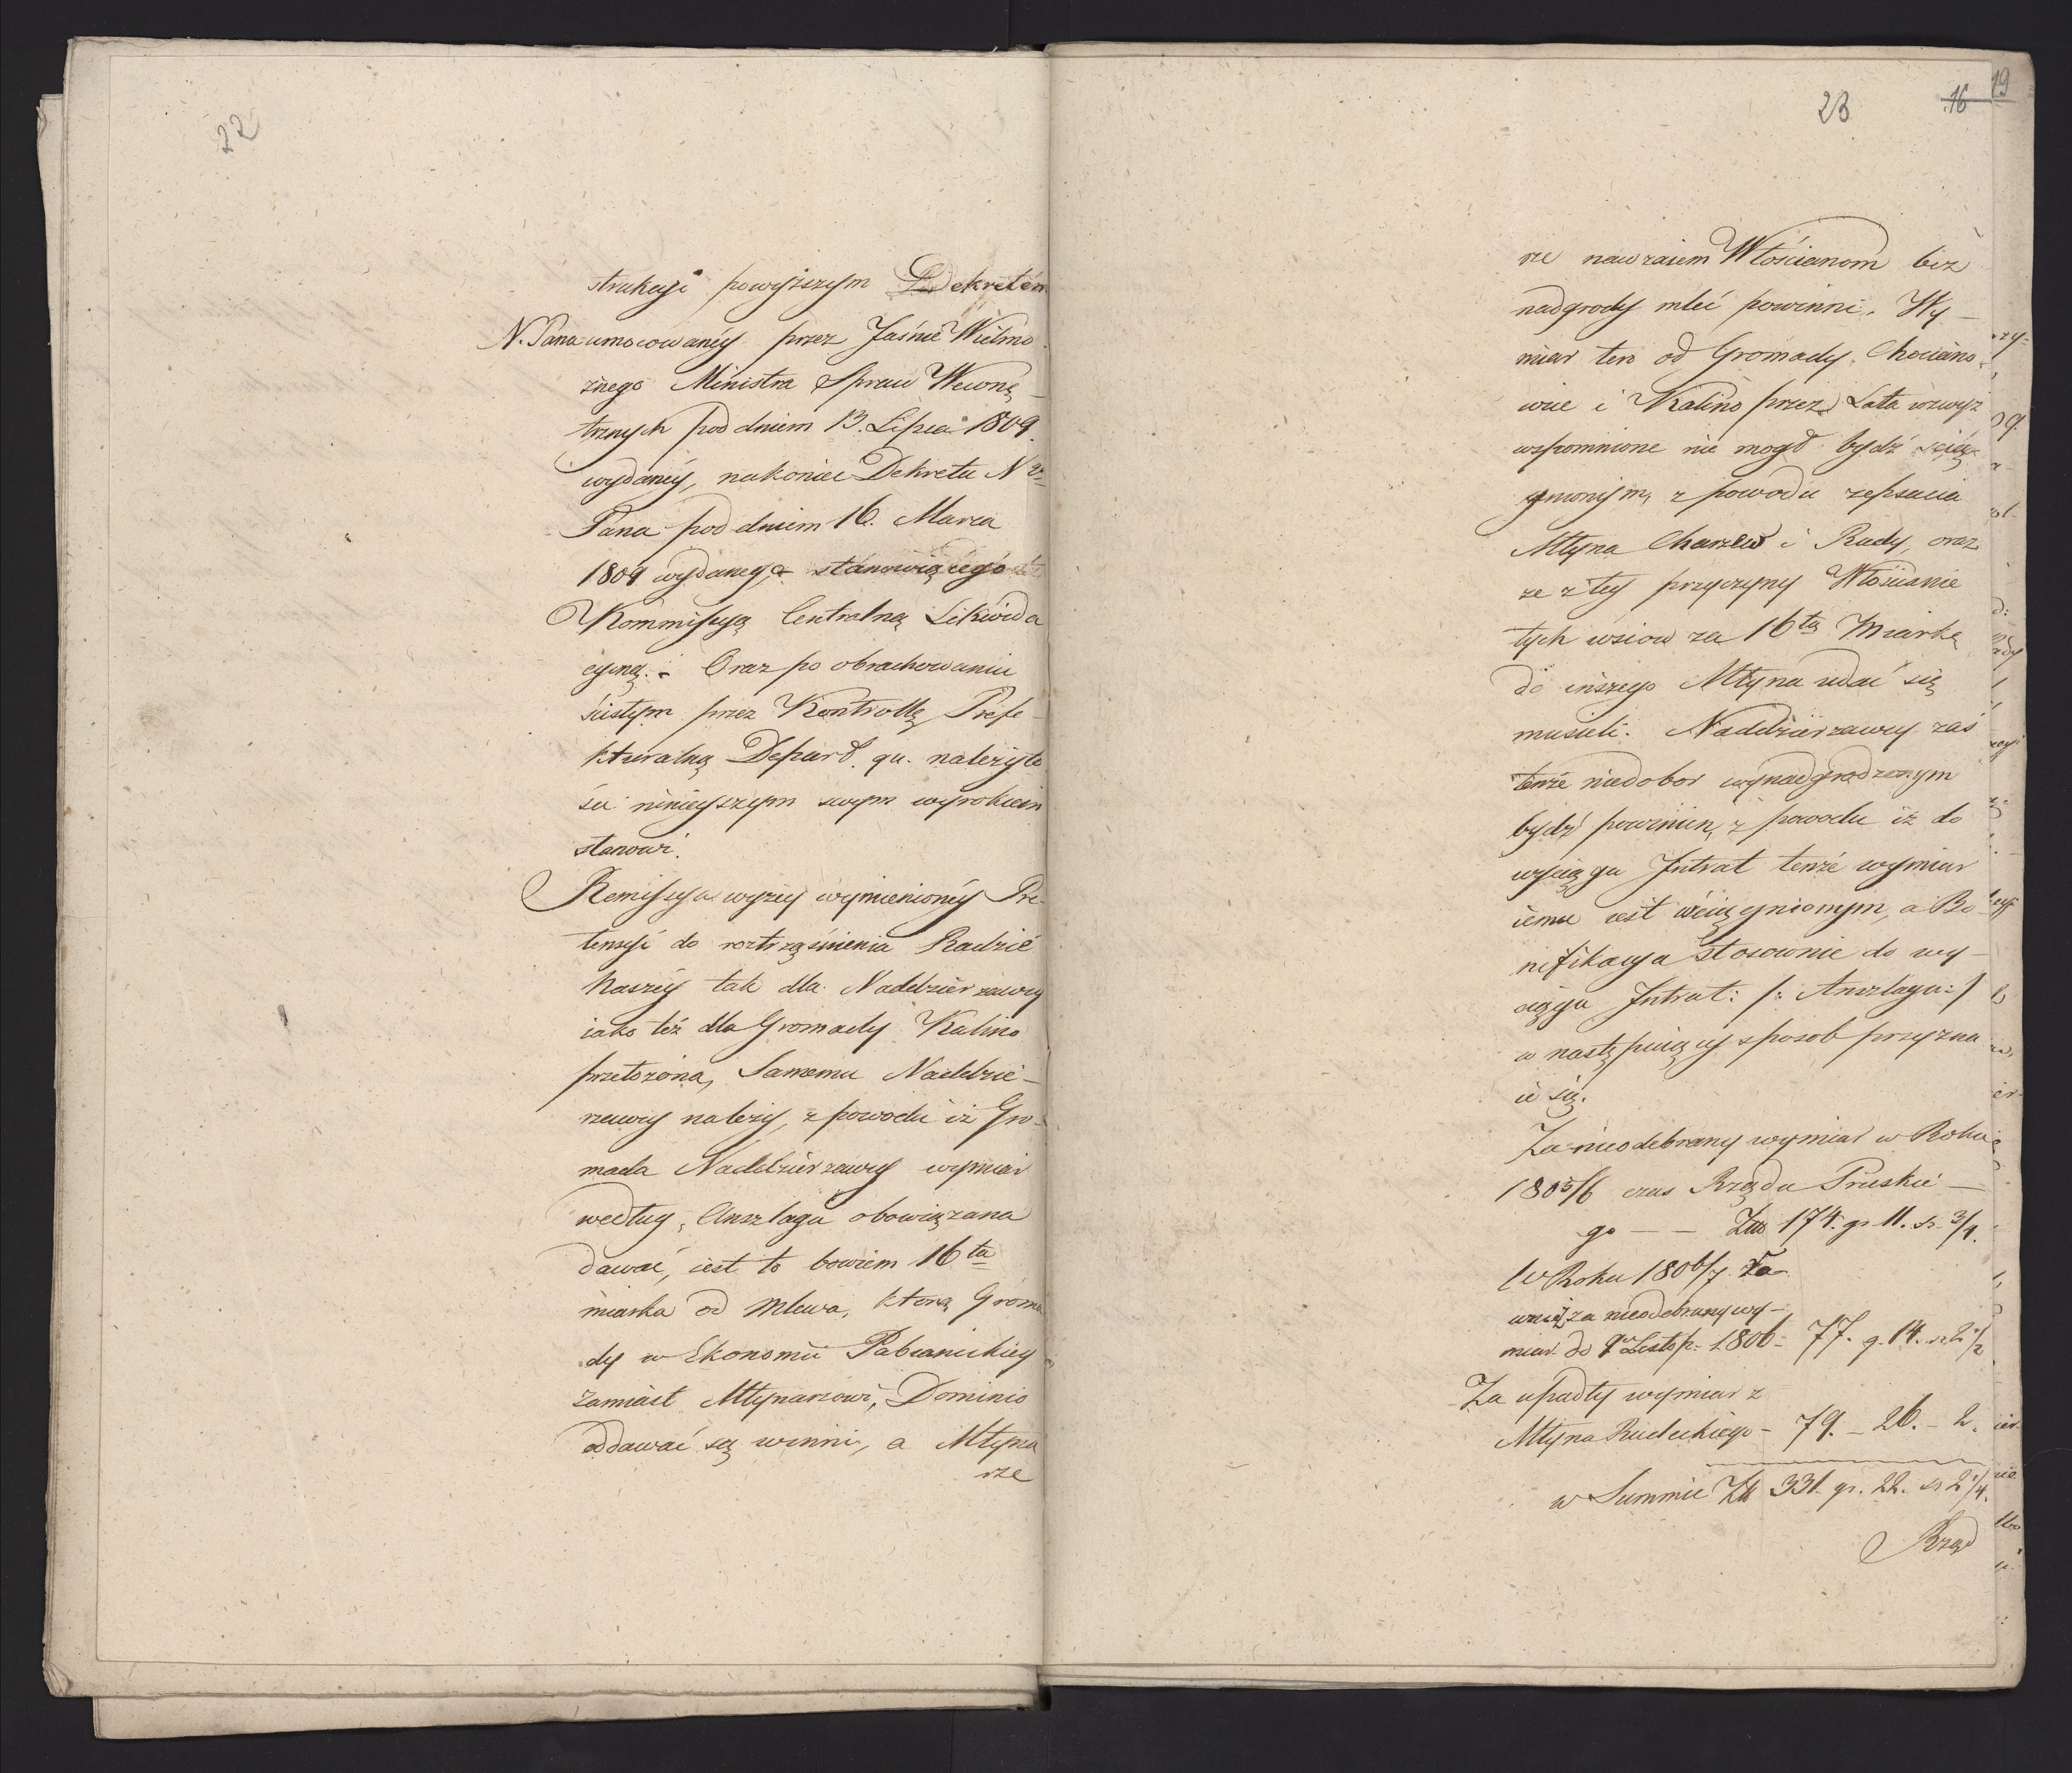 22
strukcyi powyższym Dekretem
N. Pana umocowanéy przez Jaśnie Wielmo
żnego Ministra Spraw Wewnę
trznych pod dniem 13. Lipca 1809.
wydanéy, nakoniec Dekretu N
Pana pod dniem 16. Marca
1809 wydanego stanowiącégo
Kommissyą Centralną Likwida
cyiną. Oraz po obrachowaniu
ścisłym przez Kontrollę Prefe-
kturalną Depart. qu. należyto
ści ninieyszym swym wyrokiem
stanowi.
Remissya wyżey wymienionéy Pre-
tensyi do roztrząśnienia Radzie
Naszéy tak dla Naddzierzawcy
iako też dla Gromady Kalino
przełożona, Samemu Naddzie-
rzawcy należy, z powodu iż Gro-
mada Naddzierzawcy wymiar
według Anszlagu obowiązana
dawać, iest to bowiem 16ta
miarka od mlewa, którą Groma
dy w Ekonomii Pabianickiey
zamiast Młynarzowi, Dominio
oddawać są winni, a Młyna
rze
23 16 19
rze nawzaiem Włościanom bez
nadgrody mleć powinni. Wy-
miar ten od Gromady Chociano
wie i Kalino przez Lata wzwyż
wspomnione nie mogł bydź ściąg
gnionym, z powodu zepsucia
Młyna Charzew i Rudy, oraz
że z tey przyczyny Włościanie
tych wsiow za 16tą Miarkę
do inszego Młyna udać się
musieli. Naddzierzawcy zaś
tenże niedobor wynadgrodzonym
bydź powinien, z powodu iż do
wyciągu Intrat tenże wymiar
iemu iest wciągnionym, a Bo
nifikacya stosownie do wy-
ciągu Intrat: /: Anszlagu :/
w następuiący sposob przyzna
ie się.
Za nieodebrany wymiar w Roku
1805/6 czas Rządu Pruskie-
go — — Złł 174. gr 11. sz 3/4.
W Roku 1806/7. Za
wziąż za nieodebrany wy-
miar do Listop: 1806 - 77. g. 14. sz 2 1/2
Za upadły wymiar z
Młyna Rudeckiego - 79. - 26. - 2.
w Summie Złł 331. gr. 22. sz 2 1/4.
Rząd